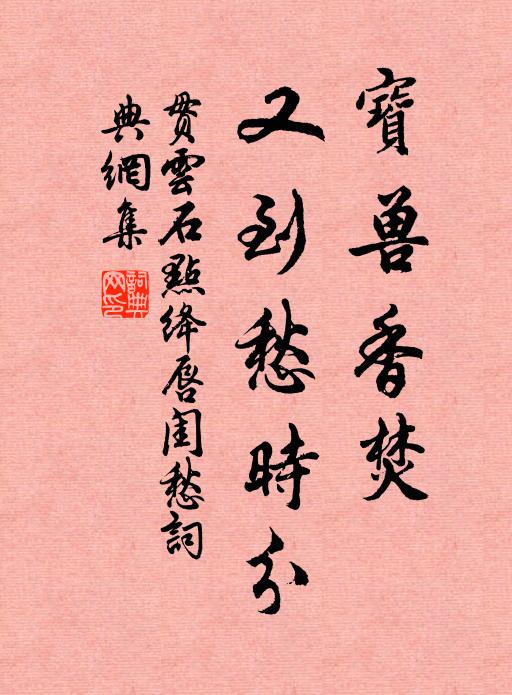 寶兽香焚
又到愁時分
贯雲石點绛唇闺愁詞
典網集
詞典网印